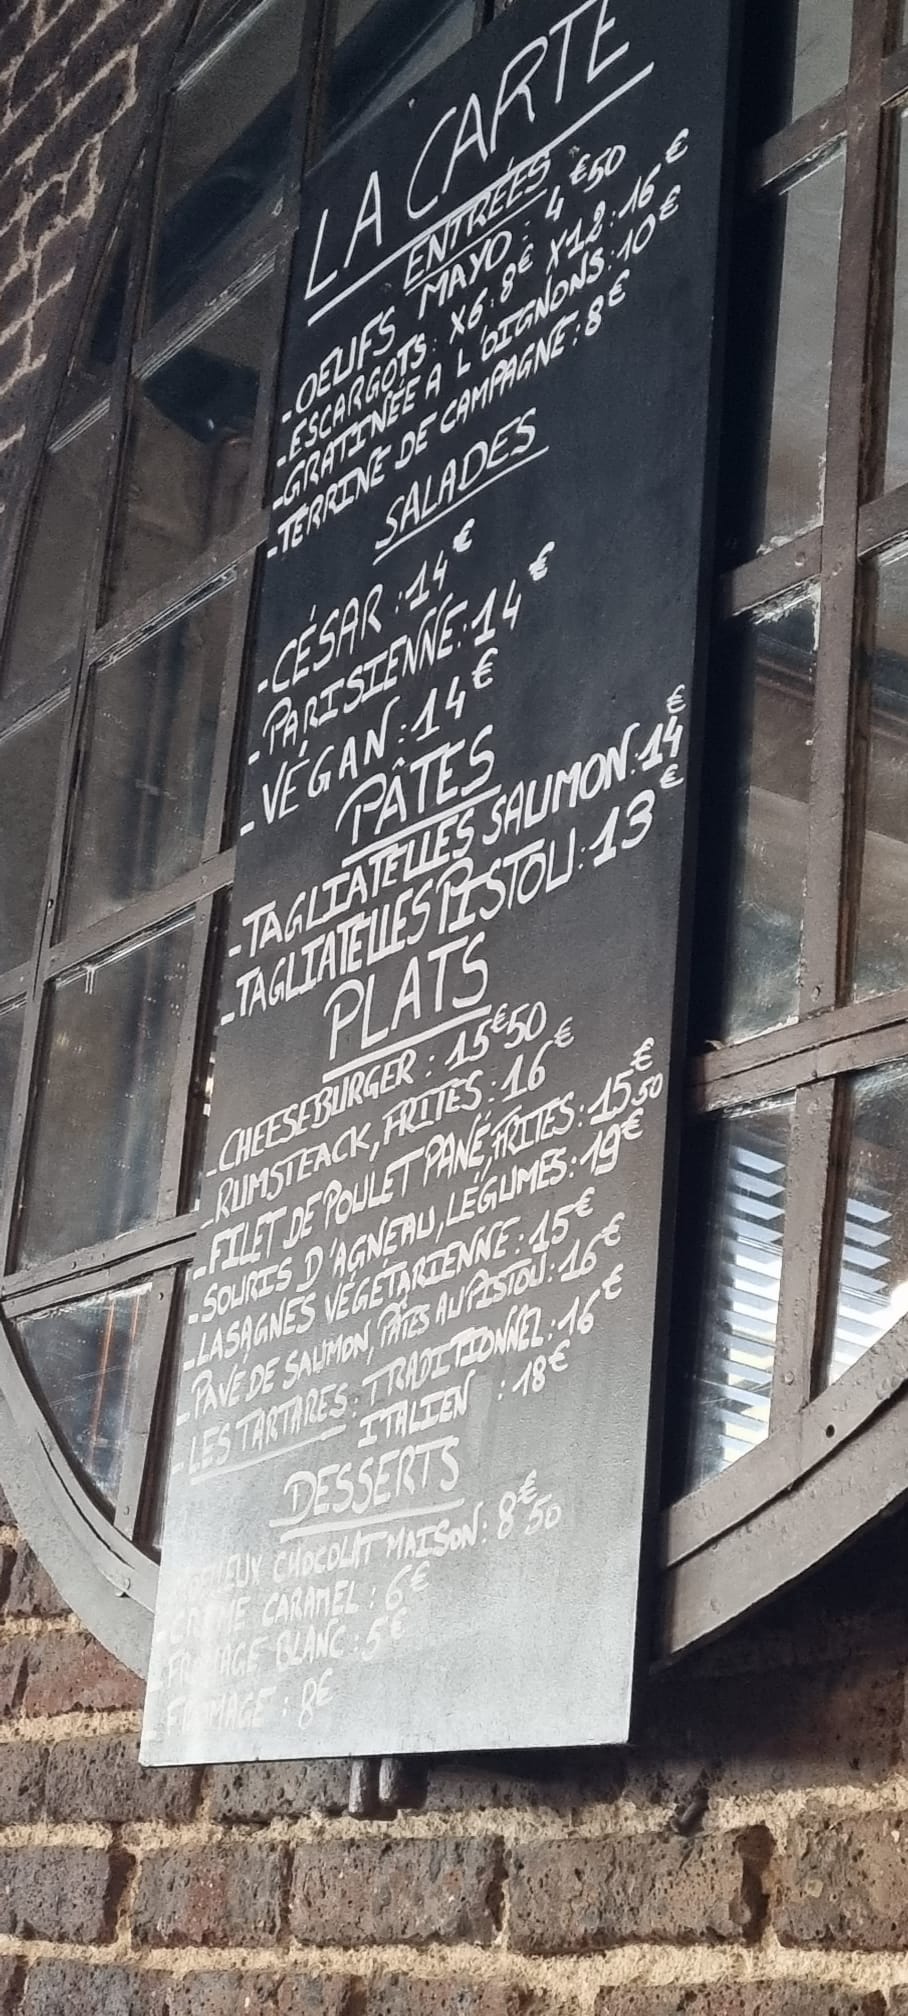 LA CARTE
ENTRÉES
-OEUFS MAYO: 4€50
-ESCARGOTS: X6:8€ X12:16€
-GRATINÉE A L'OIGNONS:10€
-TERRINE DE CAMPAGNE:8€
SALADES
-CÉSAR:14€
-PARISIENNE:14€
-VÉGAN:14€
PÂTES
-TAGLIATELLES SAUMON:14€
-TAGLIATELLES PISTOU:13€
PLATS
-CHEESEBURGER: 15€50
-RUMSTEACK, FRITES:16€
-FILET DE POULET PANÉ, FRITES:15€50
-SOURIS D'AGNEAU, LÉGUMES:19€
-LASAGNES VÉGÉTARIENNE:15€
-PAVÉ DE SAUMON, PÂTES AU PISTOU:16€
-LES TARTARES: TRADITIONNEL:16€
ITALIEN :18€
DESSERTS
MOELLEUX CHOCOLAT MAISON: 8€50
-CRÈME CARAMEL: 6€
-FROMAGE BLANC:5€
FROMAGE: 8€